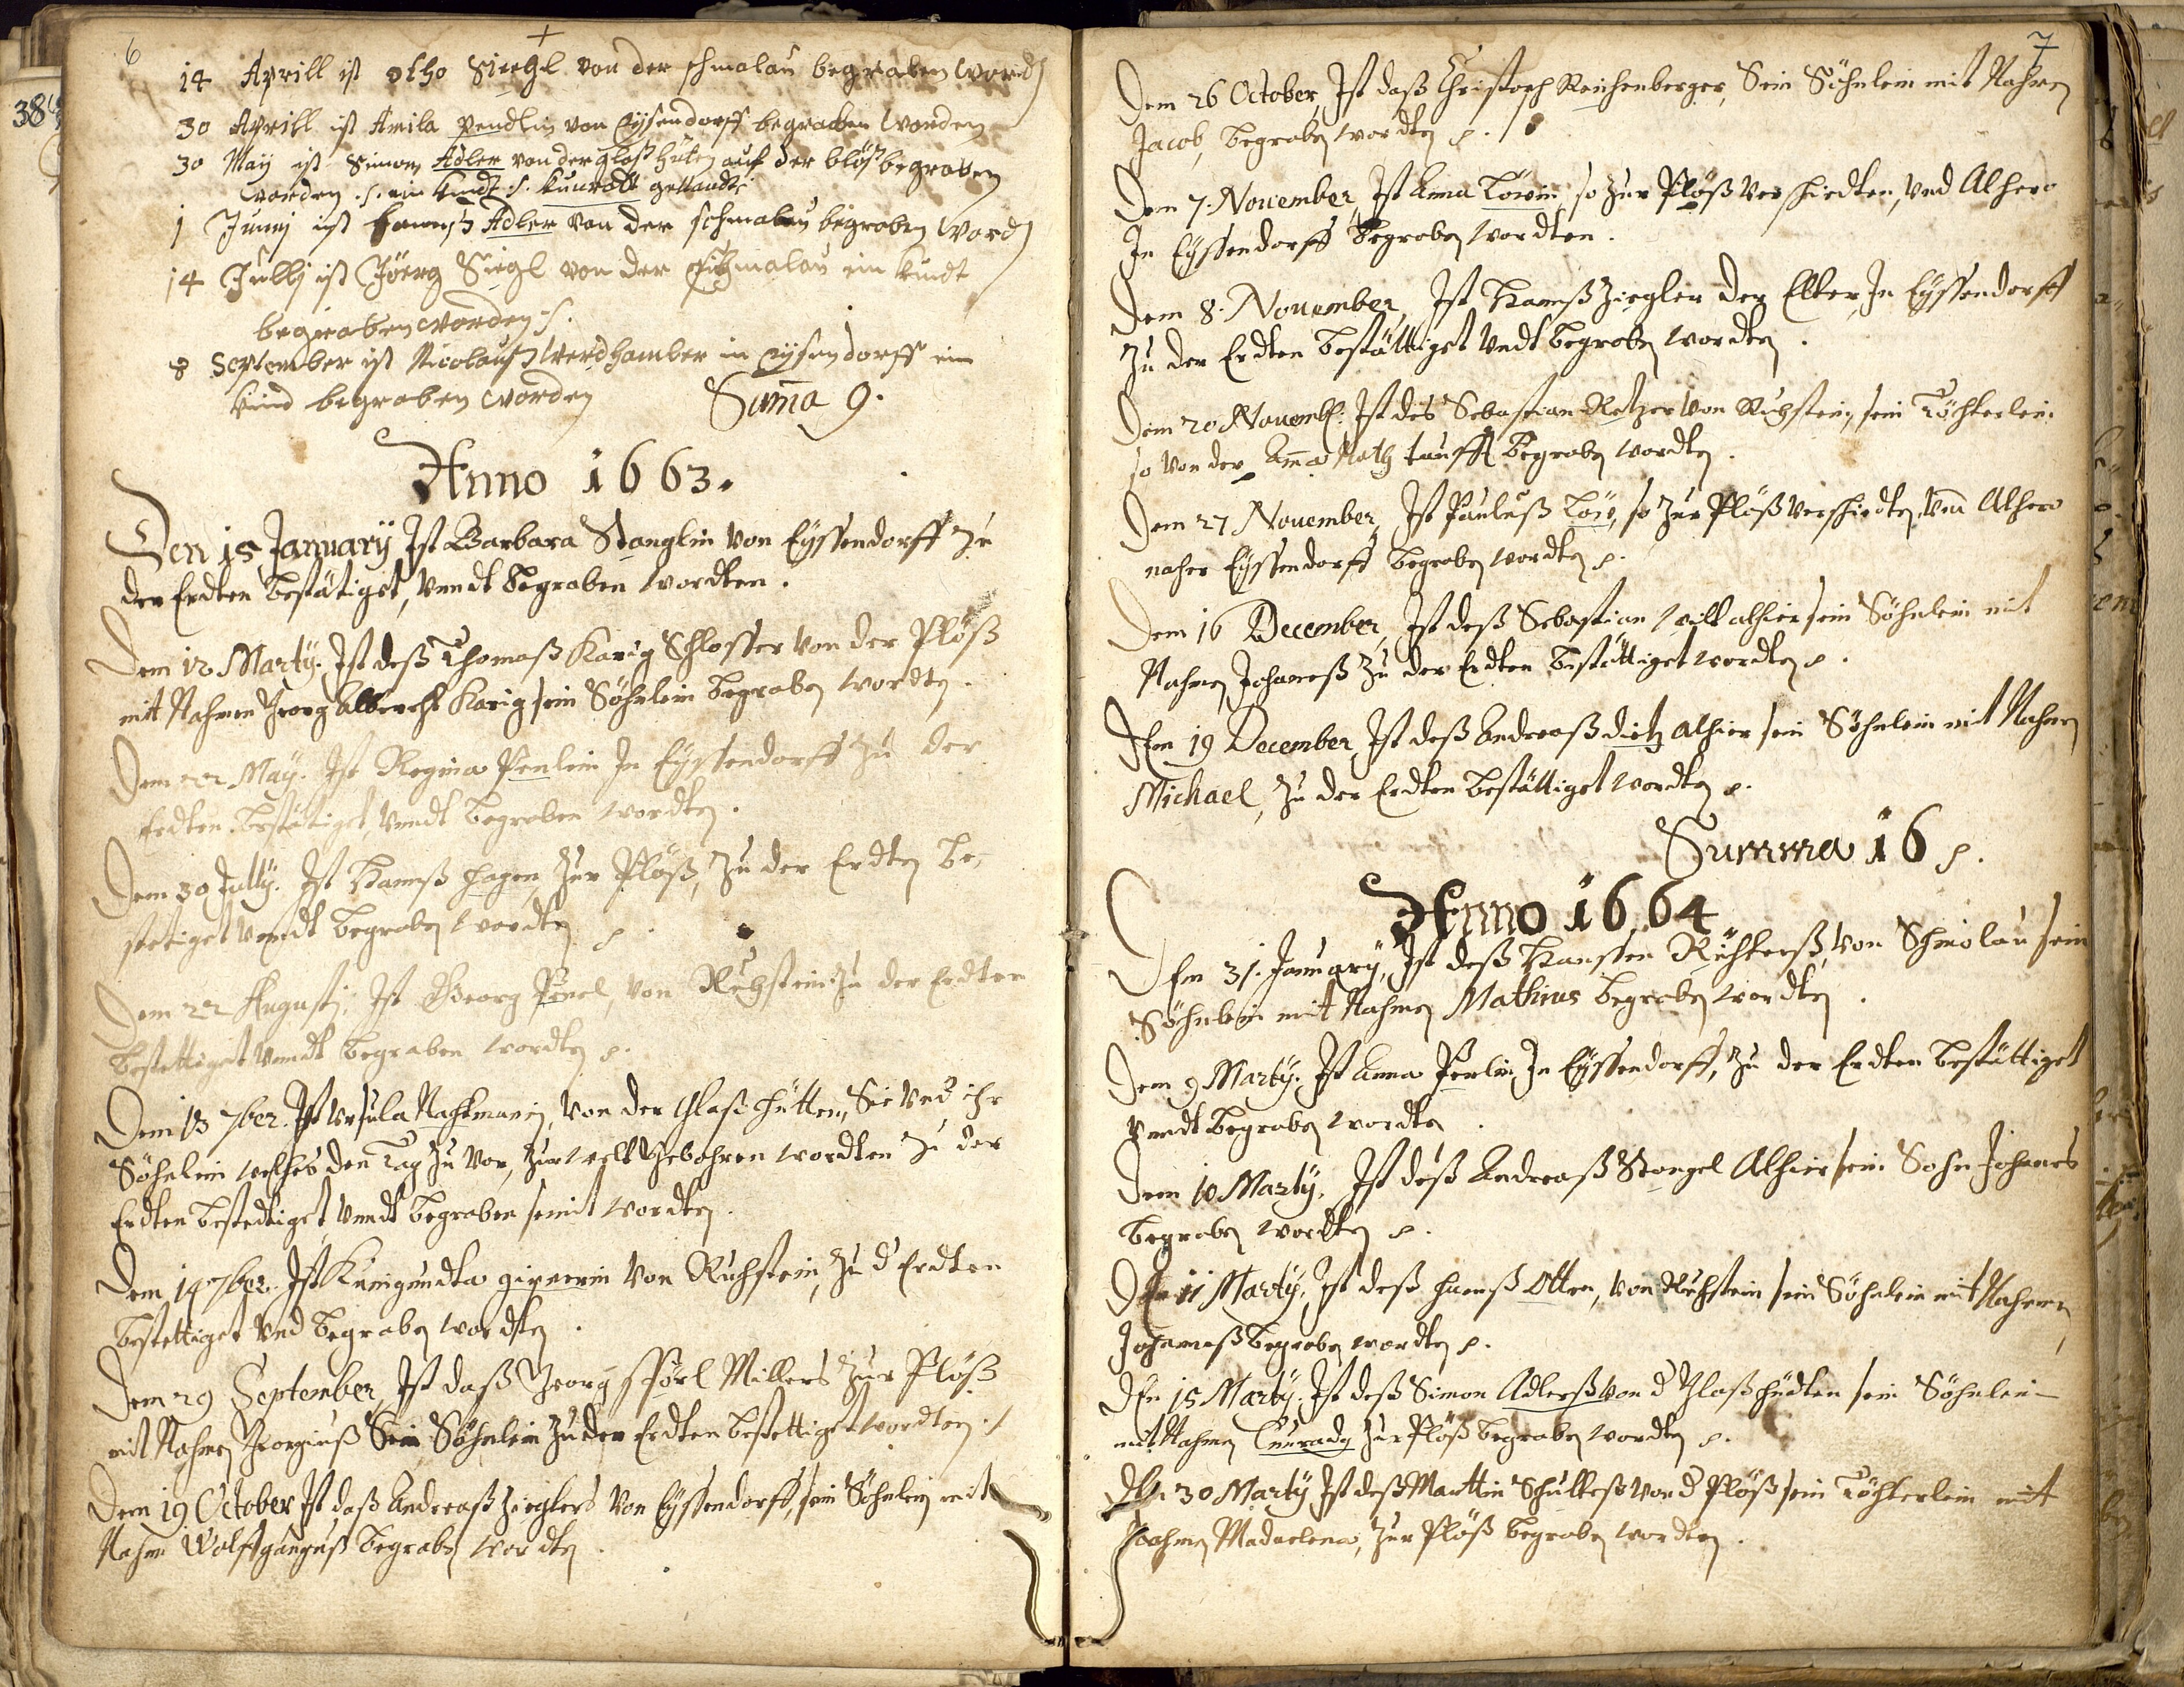 6
14 Aprill ist otho Siegl von der schmalau begraben word
30 Aprill ist Amila pendlin von Eysendorff begraben worden
30 May ist Simon Adler von der glaß hüten auf der blöß begraben
worden ./. ein kindt :/: kunradt genandt
1 Junij ist hannß Adler von der schmalau begraben word
14 Jullij ist Jöerg Siegl von der schmalau ein kindt
begraben worden :/:
8 September ist Nicolauß Werdhamber in Eysendorff ein
kind begraben worden Suma 9.
Anno 1663.
Den 15 January Ist Barbara Stanglin von Eyssendorff zu
der Erdten bestätiget, vnndt begraben wordten.
Dem 12 Marty. Ist deß Thomaß Karig Schlosser von der Plöß
mit Nahmen Georg Albrecht Karig sein Söhnlein begraben wordten.
Dem 22 May. Ist Regina Penlein In Eyssendorff zu der
Erdten bestätiget, vnndt begraben wordten.
Dem 30 Jully. Ist Hannß hagen, zur Plöß, zu der Erdten be-
stetiget vnndt begraben wordten
Dem 22 Augusti, Ist Georg Penel, von Ruhstein zu der Erdten
bestettiget vnndt begraben wordten
Dem 13 7ber. Ist Vrsula Nachtmanin, von der Glaß hütten, Sie vnd ihr
Söhnlein welches den Tag zu vor, zur welt gebohren wordten zu der
Erdten bestedtiget, vnndt begraben seindt wordten.
Dem 14 7ber. Ist Künigundta girnerin von Ruhstein, zu d Erdten
bestettiget vnd begraben wordten.
Dem 29 September, Ist daß Georg Millers zur Plöß
mit Nahmen Georgiuß Sein Söhnlein zu der Erdten bestettiget wordten
Dem 19 October Ist daß Andreaß Zieglers von Eyssendorff, sein Söhnlein mit
Nahmen Wolfganguß begraben wordten
7
Dem 26 October, Ist daß Christoph Reichenberger, Sein Söhnlein mit Nahmen
Jacob, begraben wordten
Dem 7. November, Ist Anna Löwin, so zur Plöß verschiedten, vnd Alhero
In Eyssendorff begraben wordten.
Dem 8. November, Ist Hannß Ziegler der Elter In Eyssendorff
Zu der Erdten bestättiget vndt begraben wordten.
Dem 20 Novemb: Ist des Sebastian Retzer von Ruhstein, sein Töchterlein
so von der Ama Noth taufft begraben wordten.
Dem 27 November, Ist Pauluß Löw, so zur Plöß verschiedten, vnd Alhero
naher Eyssendorff begraben wordten
Dem 16 December, Ist deß Sebastian Will alhier sein Söhnlein mit
Nahmen Johaneß zu der Erdten bestättiget wordten
Dem 19 December, Ist deß Andreaß dietz alhier sein Söhnlein mit Nahmen
Michael, zu der Erdten bestättiget wordten
Summa 16
Anno 1664
Dem 31. January, Ist deß Hansen Richterß, von Schmolau sein
Söhnlein mit Nahmen Mathius begraben wordten.
Dem 9 Marty. Ist Anna Penlin In Eyssendorff, zu der Erdten bestättiget
vnndt begraben wordten
Dem 10 Marty, Ist deß Andreaß Stangel Alhier sein Sohn Johanes
begraben wordten
Den 11 Marty, Ist deß Hanß Otten, von Ruhstein sein Söhnlein mit Nahmen
Johaneß begraben wordten
Den 15 Marty. Ist deß Simon Adlerß von d Glaß hüdten sein Söhnlein
mit Nahmen Cunradg zur Plöß begraben wordten
Den 30 Marty Ist deß Marttin Schulteß von d Plöß sein Töchterlein mit
Nahmen Madaelena, zur Plöß begraben wordten.